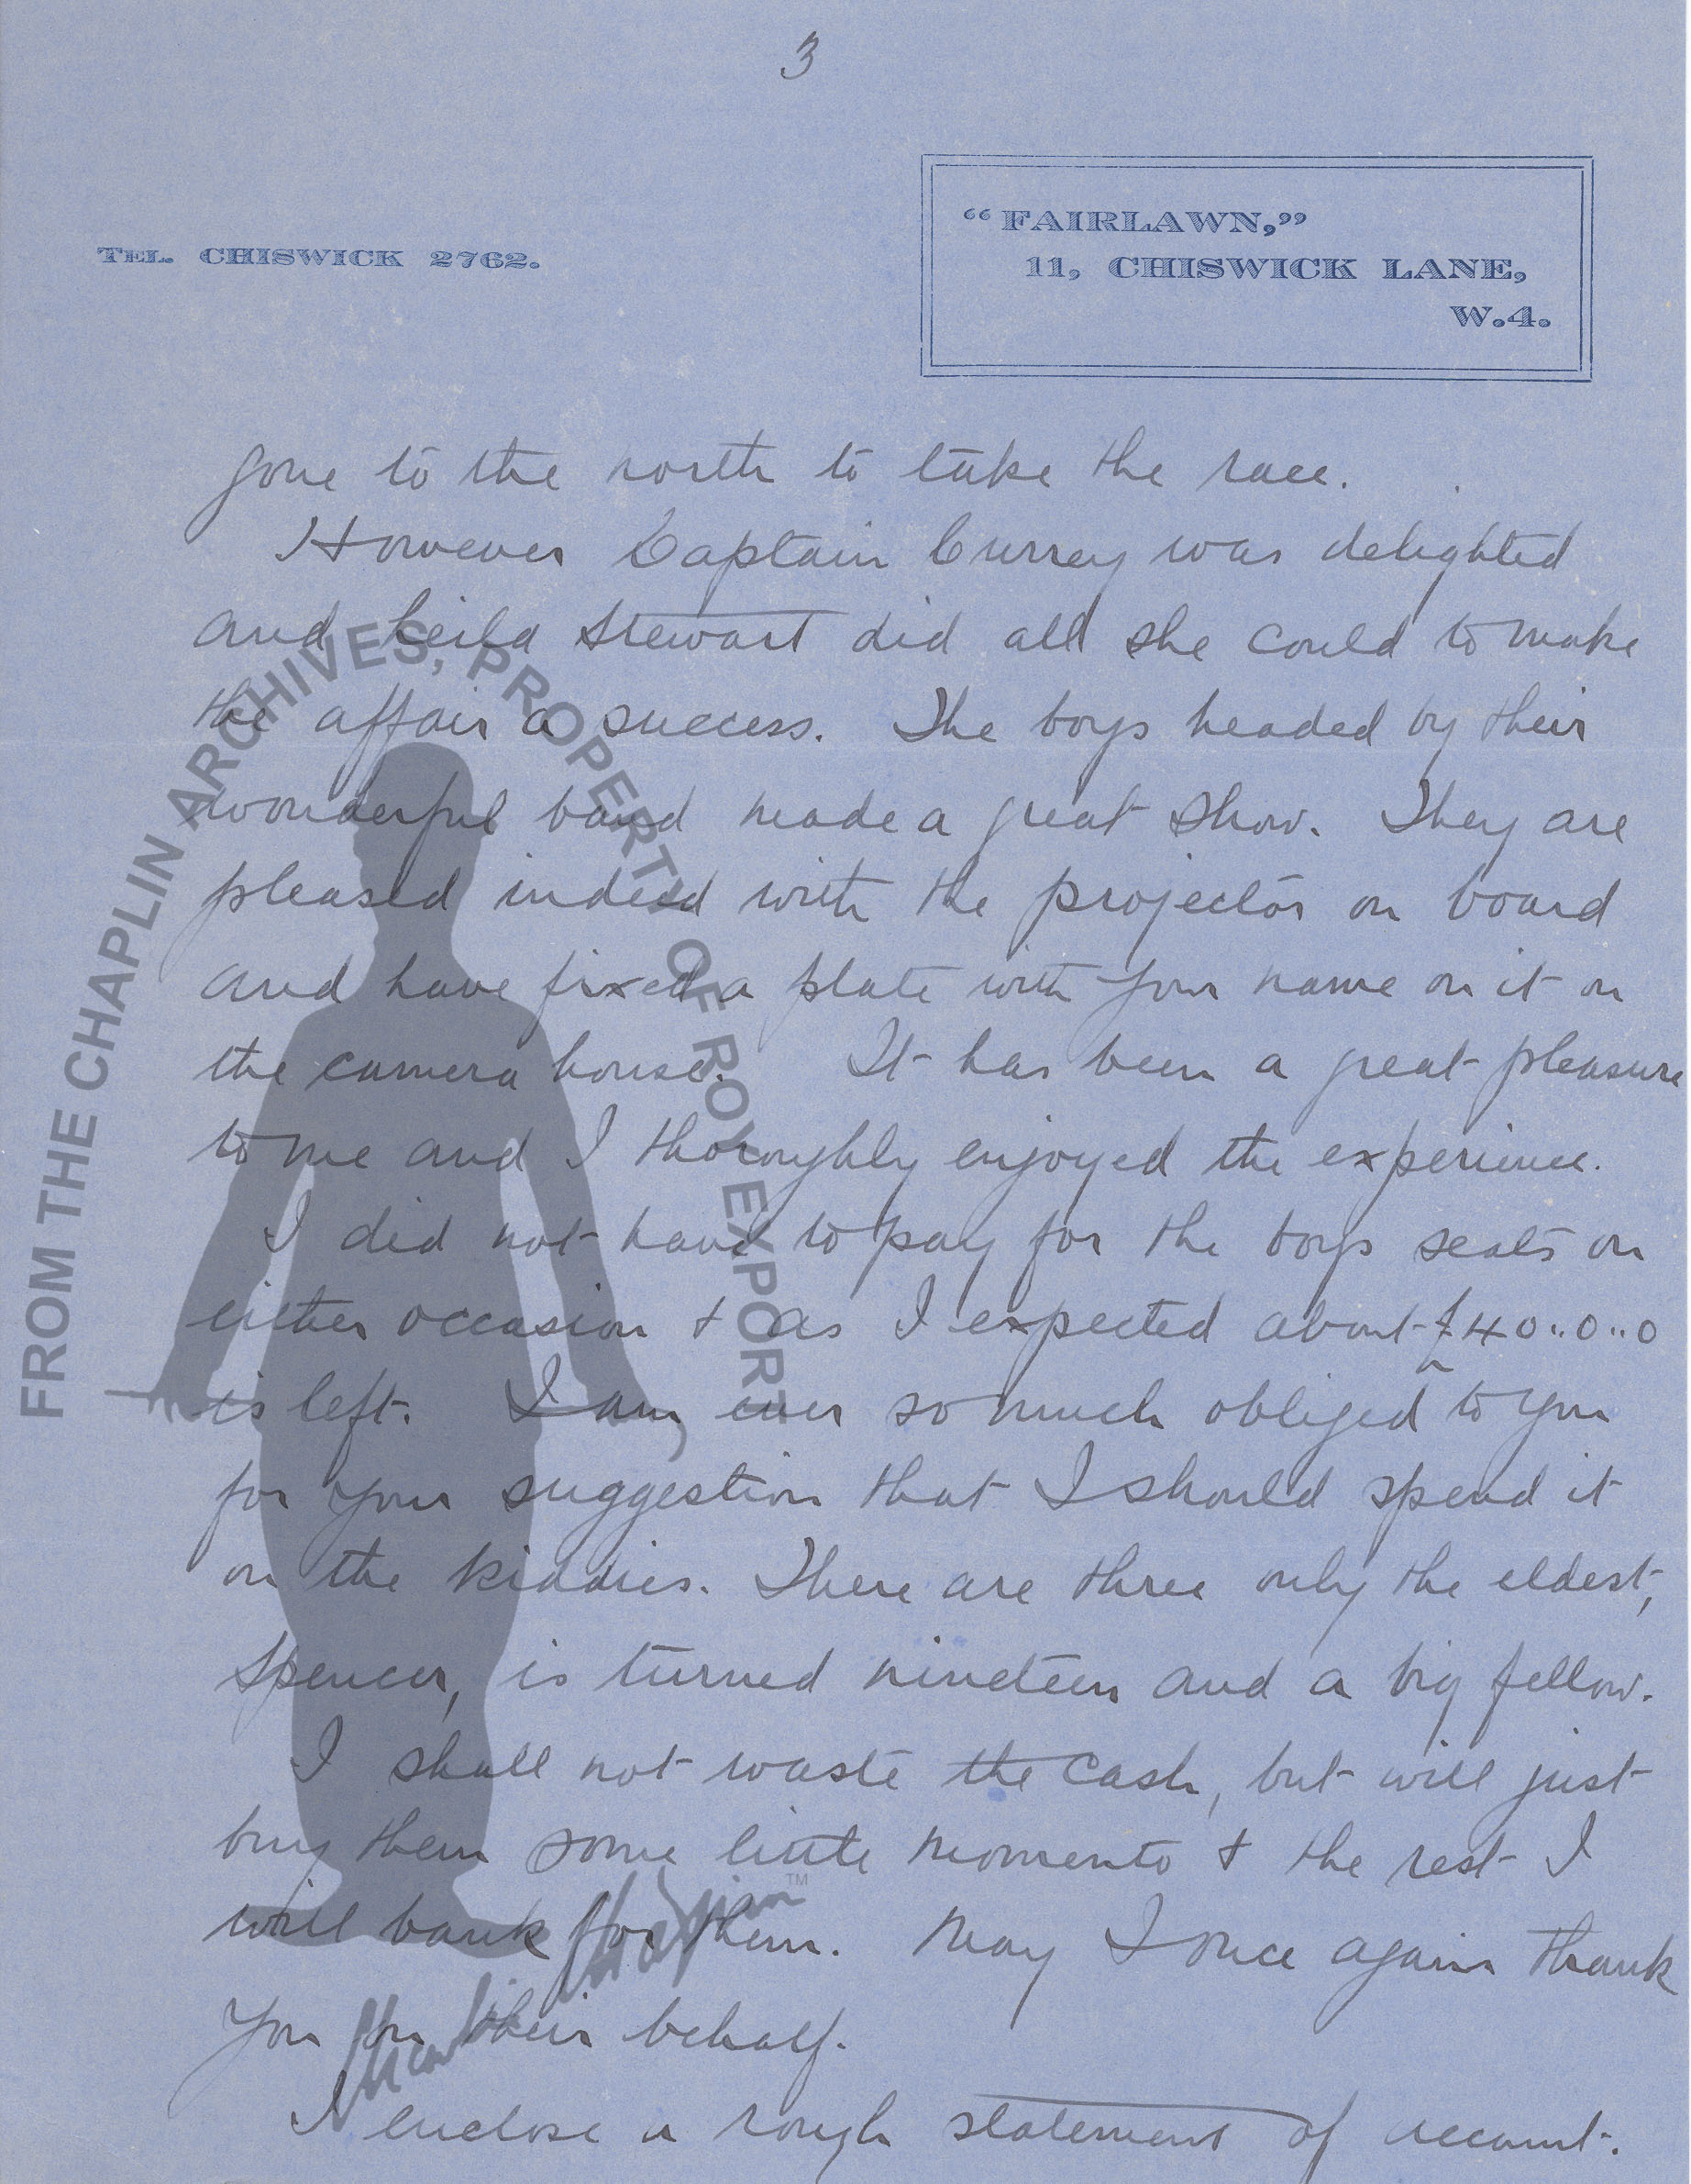 3
"FAIRLAWN,"
TEL. CHISWICK 2762.
11, CHISWICK LANE,
W.4.
gone to the north to take the race.
However Captain Currey was delighted
and Leila Stewart did all she could to make
the affair a success. The boys headed by their
wonderful band made a great show. They are
pleased indeed with the projector on board
and have fixed a plate with your name on it on
the camera house. It has been a great pleasure
to me and I thoroughly enjoyed the experience.
I did not have to pay for the boys seats on
either occasion & as I expected about £40..0..0
is left. I am ever so much obliged to you
for your suggestion that I should spend it
on the kiddies. There are three only the eldest,
Spencer, is turned nineteen and a big fellow.
I shall not waste the cash, but will just
buy them some little momento & the rest I
will bank for them. May I once again thank
you on their behalf.
I enclose a rough statement of account.
FROM THE CHAPLIN ARCHIVES, PROPERTY OF ROY EXPORT
Charlie Chaplin TM